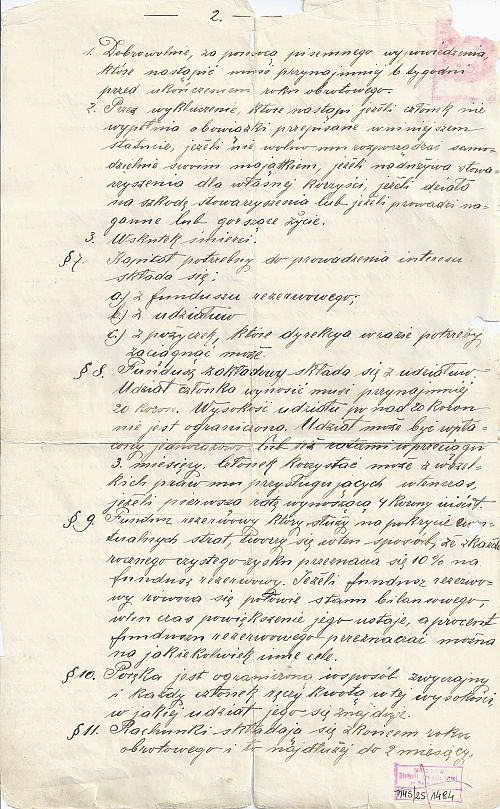 2.
1. Dobrowolnie, za pomocą pisemnego wypowiedzenia,
które nastąpić musi przynajmniej 6 tygodni
przed ukończeniem roku obrotowego.
2. Przez wykluczenie, które nastąpi jeżeli członek nie
wypełnia obowiązki przepisane w niniejszem
statucie, jeżeli nie wolno mu rozporządzać samo-
dzielnie swoim majątkiem, jeżeli nadużywa stowa-
rzyszenia dla własnej korzyści, jeżeli działa
na szkodę stowarzyszenia lub jeżeli prowadzi na-
ganne lub gorszące życie.
3. Wskutek śmierci.
§ 7. Kapitał potrzebny do prowadzenia interesu
składa się:
a.) z funduszu rezerwowego;
b.) z udziałów
c.) z pożyczek, które dyrekcya w razie potrzeby
zaciągnąć może.
§ 8. Fundusz zakładowy składa się z udziałów.
Udział członka wynosić musi przynajmniej
20 koron. Wysokość udziału po nad 20 koron
nie jest ograniczona. Udział może być wpła-
cony jednorazowo lub też ratami w przeciągu
3. miesięcy. Członek korzystać może z wszel-
kich praw mu przysługujących wówczas,
jeżeli pierwszą ratę wynoszącą 4 korony uiścił.
§ 9. Fundusz rezerwowy który służy na pokrycie ewen-
tualnych strat, tworzy się w ten sposób, że z każdo
rocznego czystego zysku przeznacza się 10% na
fundusz rezerwowy. Jeżeli fundusz rezerwo-
wy równa się połowie stanu bilansowego,
wten czas powiększenie jego ustaje, a procent
funduszu rezerwowego przeznaczać można
na jakiekolwiek inne cele.
§ 10. Poręka jest ograniczona w sposób zwyczajny
i każdy członek ręczy kwotą w tej wysokości
w jakiej udział jego się znajduje.
§ 11. Rachunki składają się z końcem roku
obrotowego i to najdłużej do 2 miesięcy.
MHS/25/1484